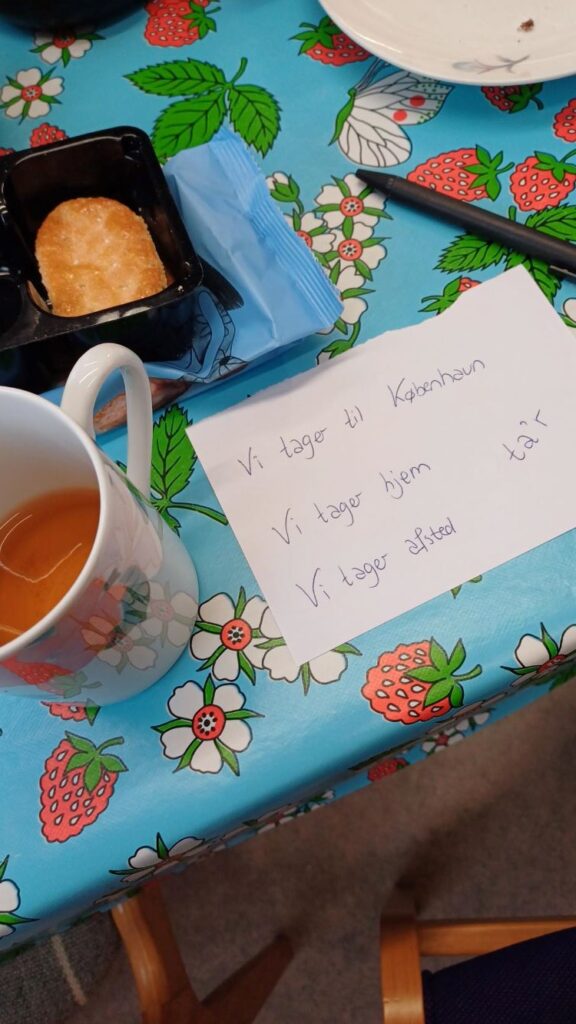 Vi tager til København
Vi tager hjem
Vi tager afsted